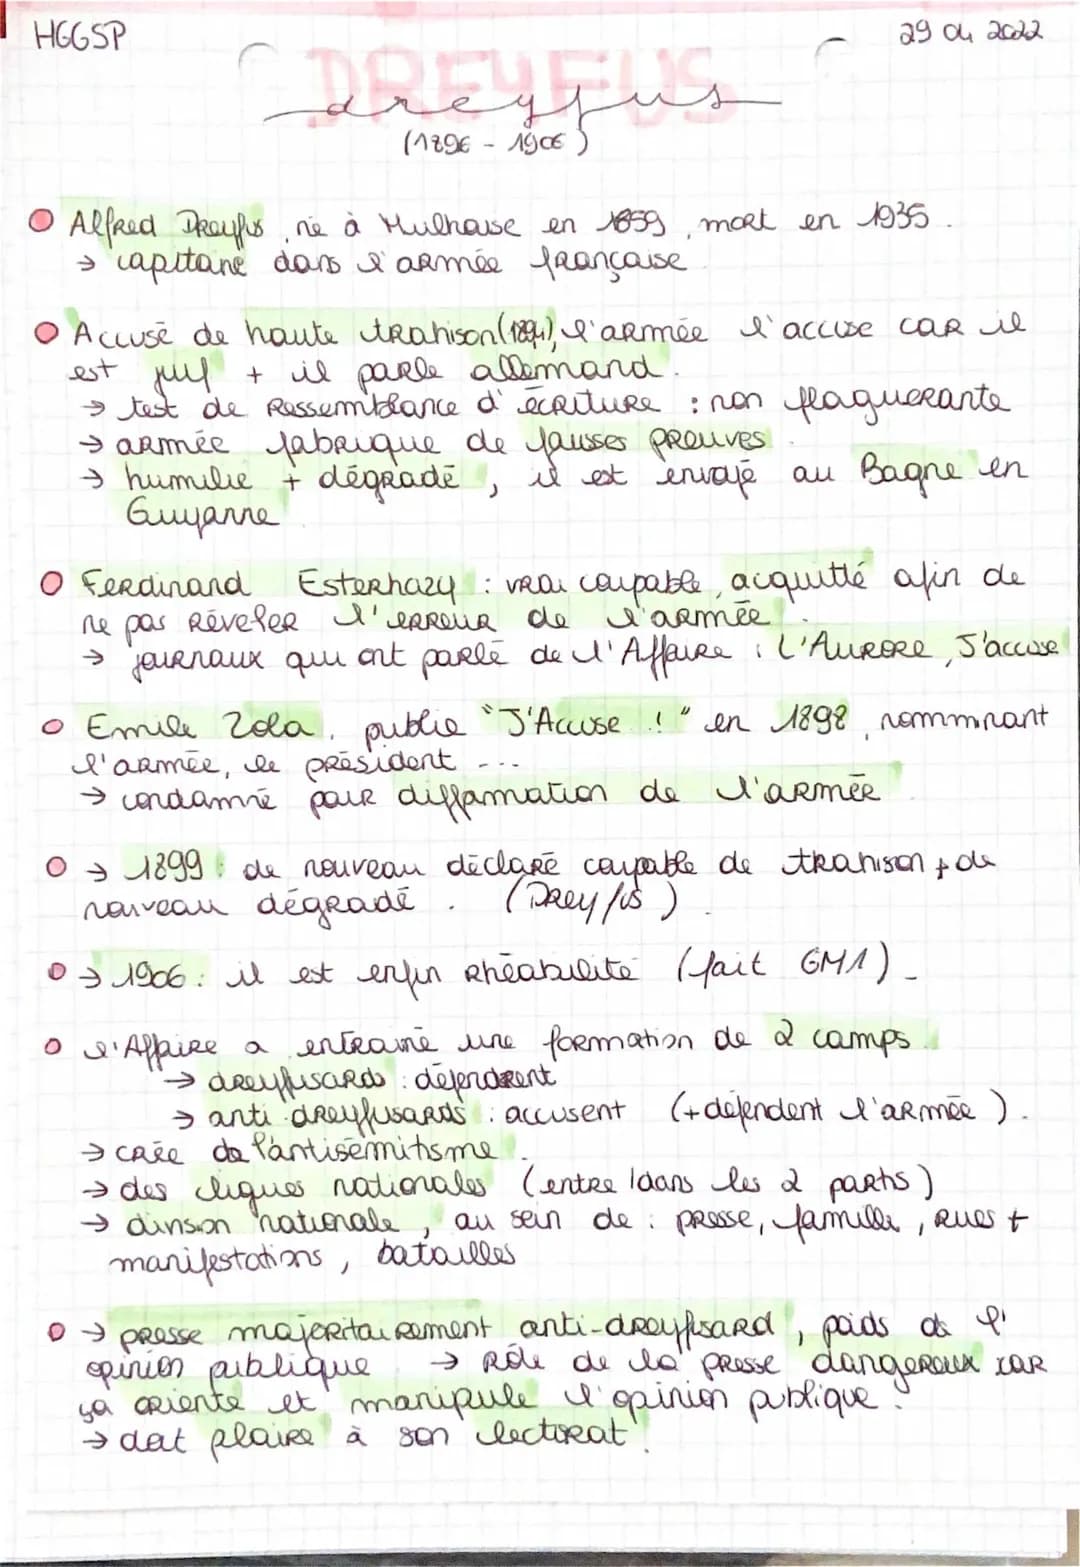 HGGSP
29 04 2022
DREYFUS
dreyfus
(1896 - 1906)
Alfred Dreyfus, né à Mulhouse en 1859, mort en 1935.
→ capitane dans l'armée française
Accusé de haute trahison (1894), l'armée l'accuse car il
est juif + il parle allemand.
→ test de ressemblance d'écriture : non flaguerante
→ armée fabrique de fausses preuves.
→ humilie + dégradé, il est envoyé au Bagne en
Guyanne
Ferdinand Esterhazy : vrai coupable, acquitté afin de
ne pas révéler l'erreur de l'armée.
→ journaux qui ont parlé de l'Affaire : L'Aurore, J'accuse
Emile Zola, publie "J'Accuse..!" en 1898, nommminant
l'armée, le président ...
→ condamné pour diffamation de l'armée
→ 1899 : de nouveau déclaré coupable de trahison + de
nouveau dégradé. (Dreyfus).
→ 1906 : il est enfin rhéabilité (fait GM1).
l'Affaire a entraîné une formation de 2 camps.
→ dreyfusards : défendrent
→ anti-dreyfusards : accusent (+ défendent l'armée).
→ crée de l'antisémitisme.
→ des cligues nationales (entre/dans les 2 partis)
→ division nationale, au sein de : presse, famille, rues +
manifestations, batailles
→ presse majoritairement anti-dreyfusard, poids de l'
opinion publique → Rôle de la presse dangereux car
ça oriente et manipule l'opinion publique.
→ doit plaire à son lectorat.